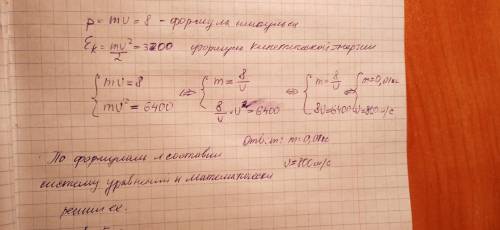 p = mv = 8 - формула импульса
Eк = mv²/2 = 3200 формула кинетической энергии
{ mv = 8 ⇔ { m = 8/v ⇔ { m = 8/v ⇔ { m = 0,01кг
mv² = 6400 8/v · v² = 6400 8v = 6400 v = 800 м/с
Ответ: m = 0,01кг
v = 800 м/с
По формулам я составил
систему уравнений и математически
решил её.